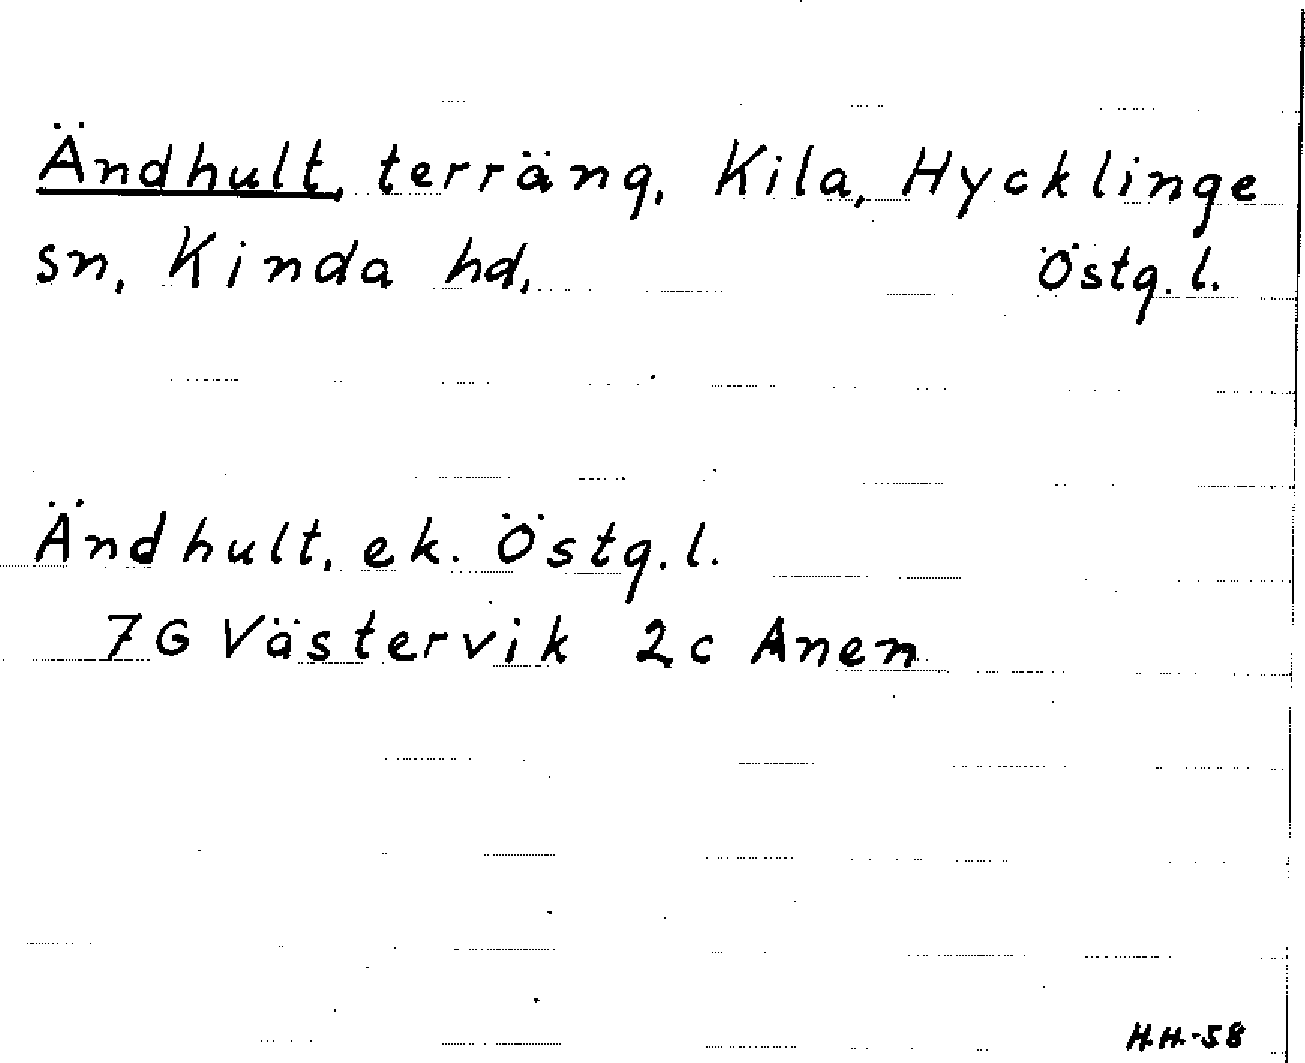 Ändhult, terräng, Kila, Hycklinge
sn, Kinda hd, Östg.l.
Ändhult, ek. Östg.l.
7G Västervik 2c Anen
H.H.-58